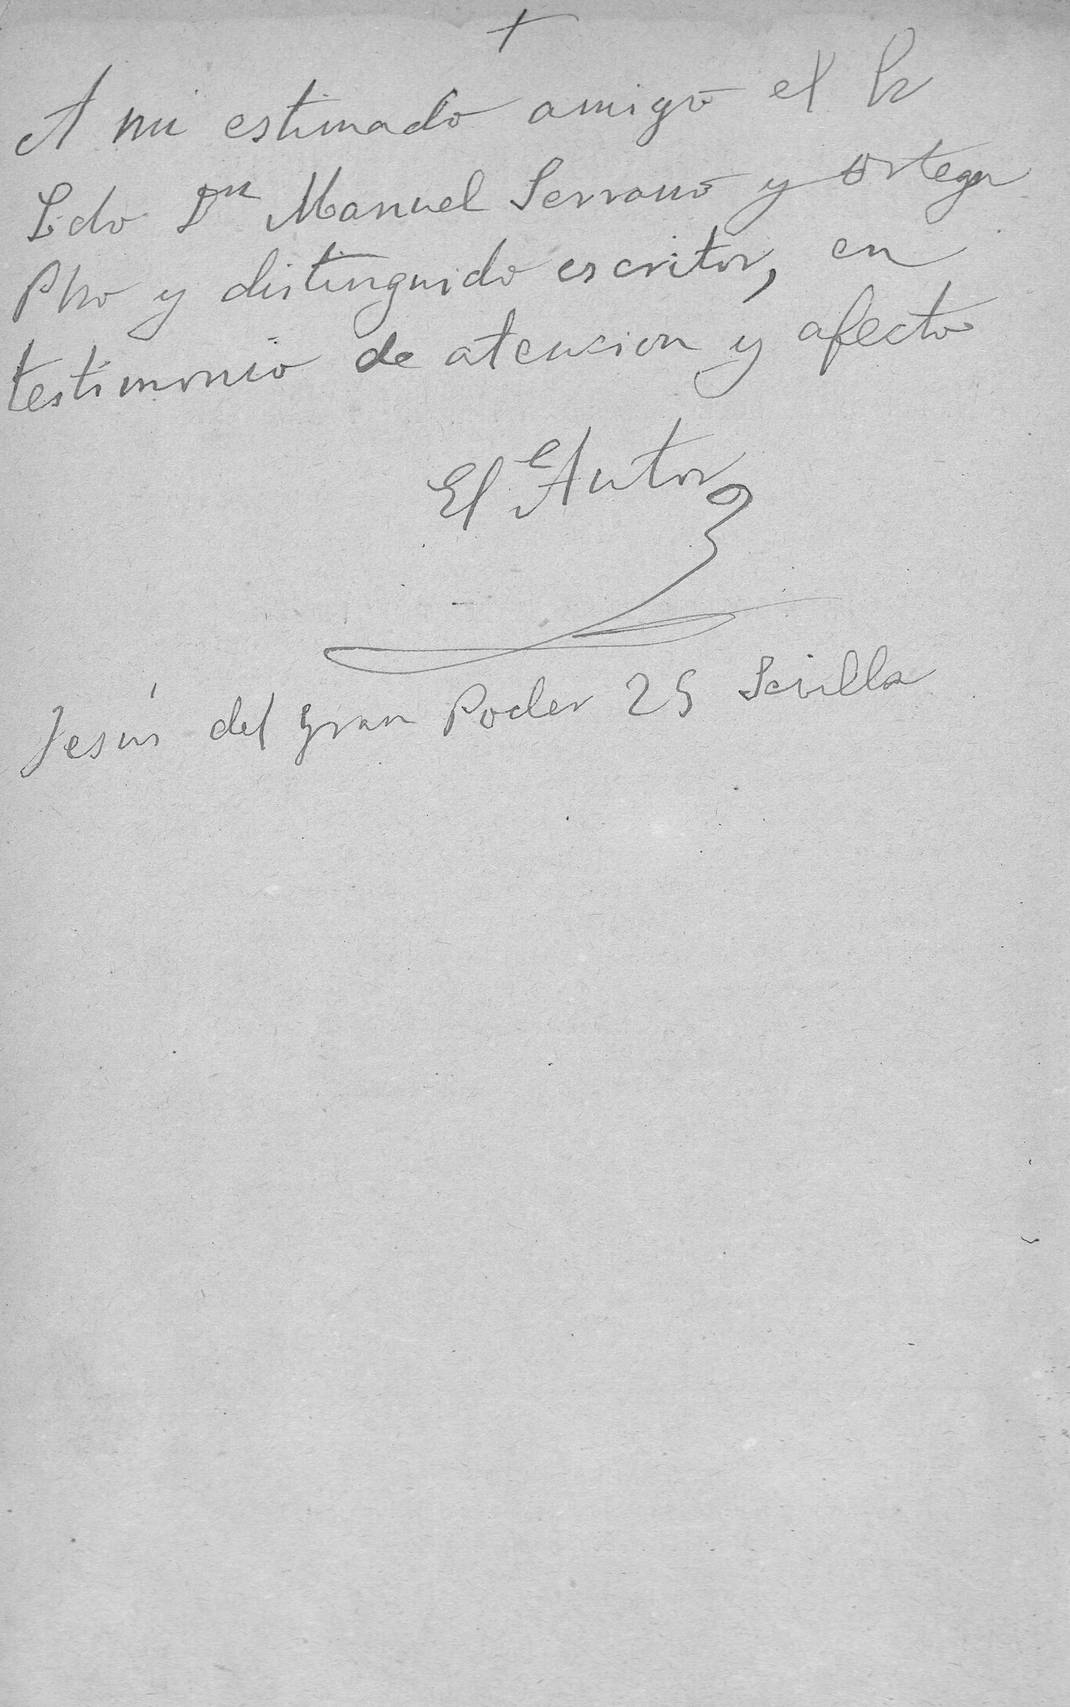 +
A mi estimado amigo el Sr
Ldo Dn Manuel Serrano y Ortega
Pbro y distinguido escritor, en
testimonio de atencion y afecto
El Autor
Jesús del gran Poder 25 Sevilla